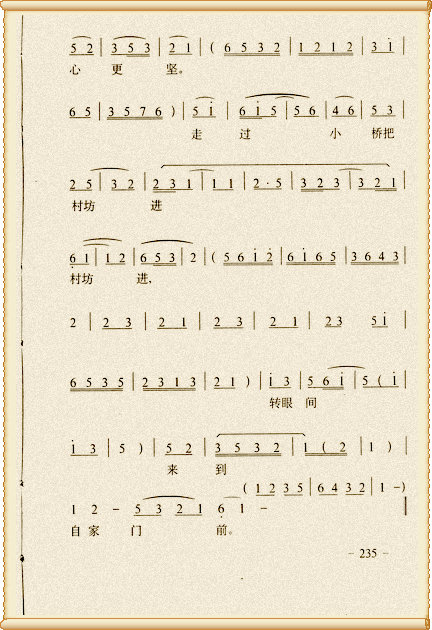 5 2 | 3 5 3 | 2 1 | ( 6 5 3 2 | 1 2 1 2 | 3 i |
心 更 坚。
6 5 | 3 5 7 6 ) | 5 i | 6 i 5 | 5 6 | 4 6 | 5 3 |
走 过 小 桥把
2 5 | 3 2 | 2 3 1 | 1 1 | 2 · 5 | 3 2 3 | 3 2 1 |
村坊 进
6 1 | 1 2 | 6 5 3 | 2 | ( 5 6 i 2 | 6 i 6 5 | 3 6 4 3 |
村坊 进,
2 | 2 3 | 2 1 | 2 3 | 2 1 | 2 3 5 i |
6 5 3 5 | 2 3 1 3 | 2 1 ) | i 3 | 5 6 i | 5 ( i |
转眼 间
i 3 | 5 ) | 5 2 | 3 5 3 2 | 1 ( 2 | 1 ) |
来 到
( 1 2 3 5 | 6 4 3 2 | 1 - )
1 2 - 5 3 2 1 6 1 -
自 家 门 前。
- 235 -